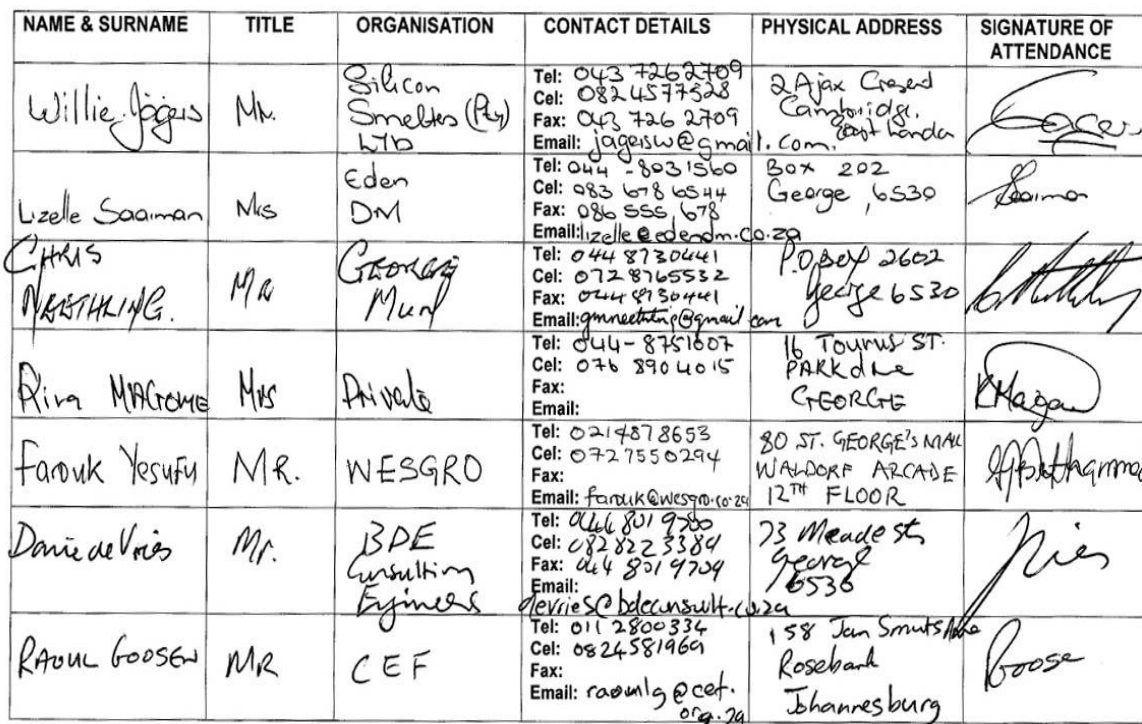 NAME & SURNAME TITLE ORGANISATION CONTACT DETAILS PHYSICAL ADDRESS SIGNATURE OF
ATTENDANCE
Willie Jägers Mr. Silicon
Smelters (Pty)
LTD
Tel: 043 7262709
Cel: 0824577528
Fax: 043 726 2709
Email: jagersw@gmail.com.
2 Ajax Cresend
Cambridge,
East London
Lizelle Saaiman Mrs Eden
DM
Tel: 044 - 8031560
Cel: 083 678 6544
Fax: 086 555 678
Email: lizelle@edendm.co.za
Box 202
George, 6530
Saaiman
CHRIS
NEETHLING.
MR
GEORGE
Mun
Tel: 044 8730441
Cel: 0728765532
Fax: 044 8730441
Email:
P.O. Box 2602
George 6530
Mrs Private
Tel: 044-8751007
Cel: 076 8904015
Fax:
Email:
16 ST.
GEORGE
Farouk Yesufu MR. WESGRO
Tel: 0214878653
Cel: 0727550294
Fax:
Email: farouk@wesgro.co.za
80 ST. GEORGE'S MALL
WALDORF ARCADE
12TH FLOOR
Danie de Vries Mr. BDE
Consulting
Engineers
Tel: 044 801 9700
Cel: 0828223384
Fax: 044 801 9709
Email:
devries@bdeconsult.co.za
73 Meade st,
George
6530
Vries
RAOUL GOOSEN MR CEF
Tel: 011 2800334
Cel: 0824581969
Fax:
Email: raoulg@cef.
org.za
158 Jan Smuts Ave
Rosebank
Johannesburg
Goose